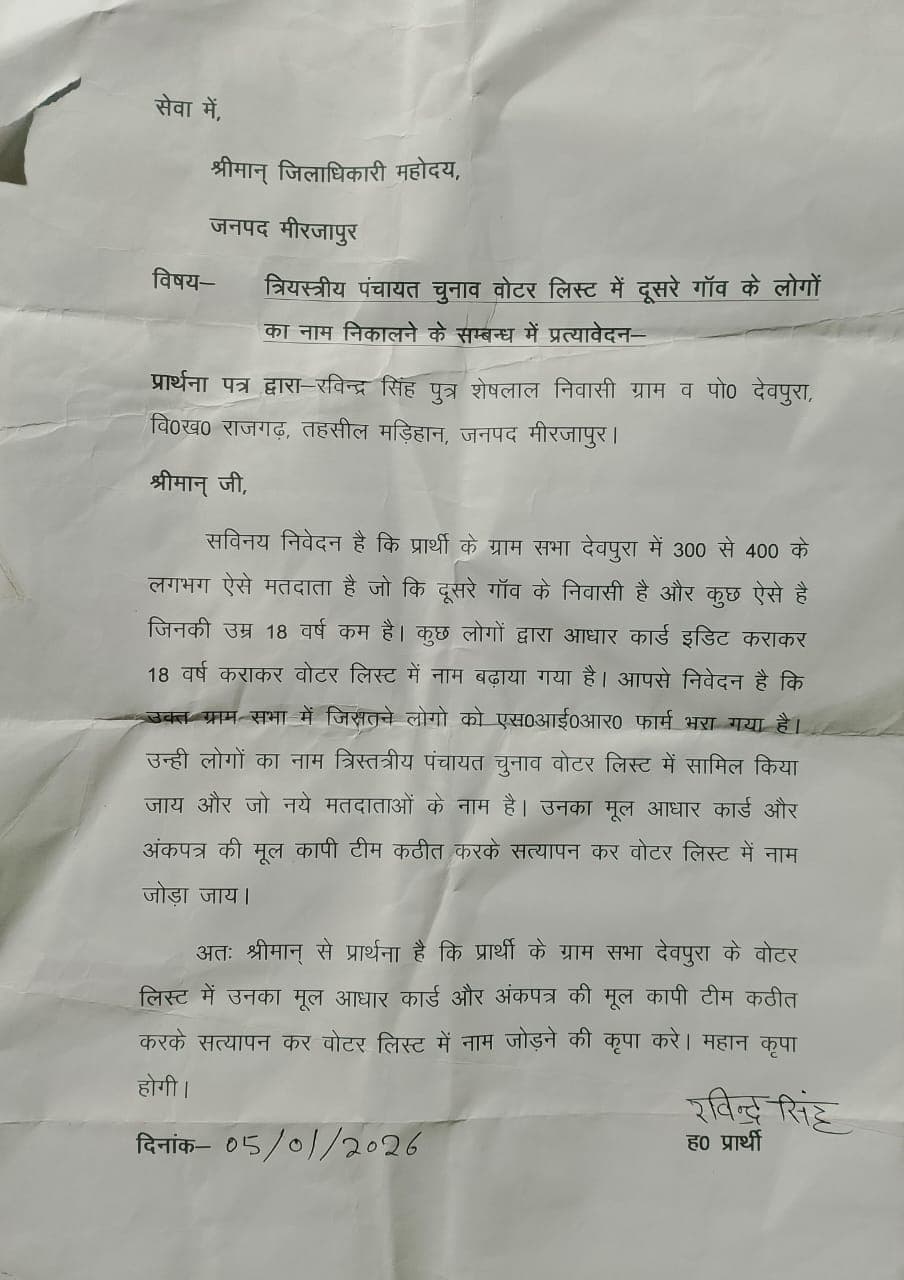 सेवा में,
श्रीमान् जिलाधिकारी महोदय,
जनपद मीरजापुर
विषय– त्रियस्त्रीय पंचायत चुनाव वोटर लिस्ट में दूसरे गॉव के लोगों
का नाम निकालने के सम्बन्ध में प्रत्यावेदन–
प्रार्थना पत्र द्वारा–रविन्द्र सिंह पुत्र शेषलाल निवासी ग्राम व पो0 देवपुरा,
वि0ख0 राजगढ़, तहसील मड़िहान, जनपद मीरजापुर।
श्रीमान् जी,
सविनय निवेदन है कि प्रार्थी के ग्राम सभा देवपुरा में 300 से 400 के
लगभग ऐसे मतदाता है जो कि दूसरे गॉव के निवासी है और कुछ ऐसे है
जिनकी उम्र 18 वर्ष कम है। कुछ लोगों द्वारा आधार कार्ड इडिट कराकर
18 वर्ष कराकर वोटर लिस्ट में नाम बढ़ाया गया है। आपसे निवेदन है कि
उक्त ग्राम सभा में जिसतने लोगो को एस0आई0आर0 फार्म भरा गया है।
उन्ही लोगों का नाम त्रिस्तत्रीय पंचायत चुनाव वोटर लिस्ट में सामिल किया
जाय और जो नये मतदाताओं के नाम है। उनका मूल आधार कार्ड और
अंकपत्र की मूल कापी टीम कठीत करके सत्यापन कर वोटर लिस्ट में नाम
जोड़ा जाय।
अतः श्रीमान् से प्रार्थना है कि प्रार्थी के ग्राम सभा देवपुरा के वोटर
लिस्ट में उनका मूल आधार कार्ड और अंकपत्र की मूल कापी टीम कठीत
करके सत्यापन कर वोटर लिस्ट में नाम जोड़ने की कृपा करे। महान कृपा
होगी।
रविन्द्र सिंह
दिनांक– 05/01/2026 ह0 प्रार्थी